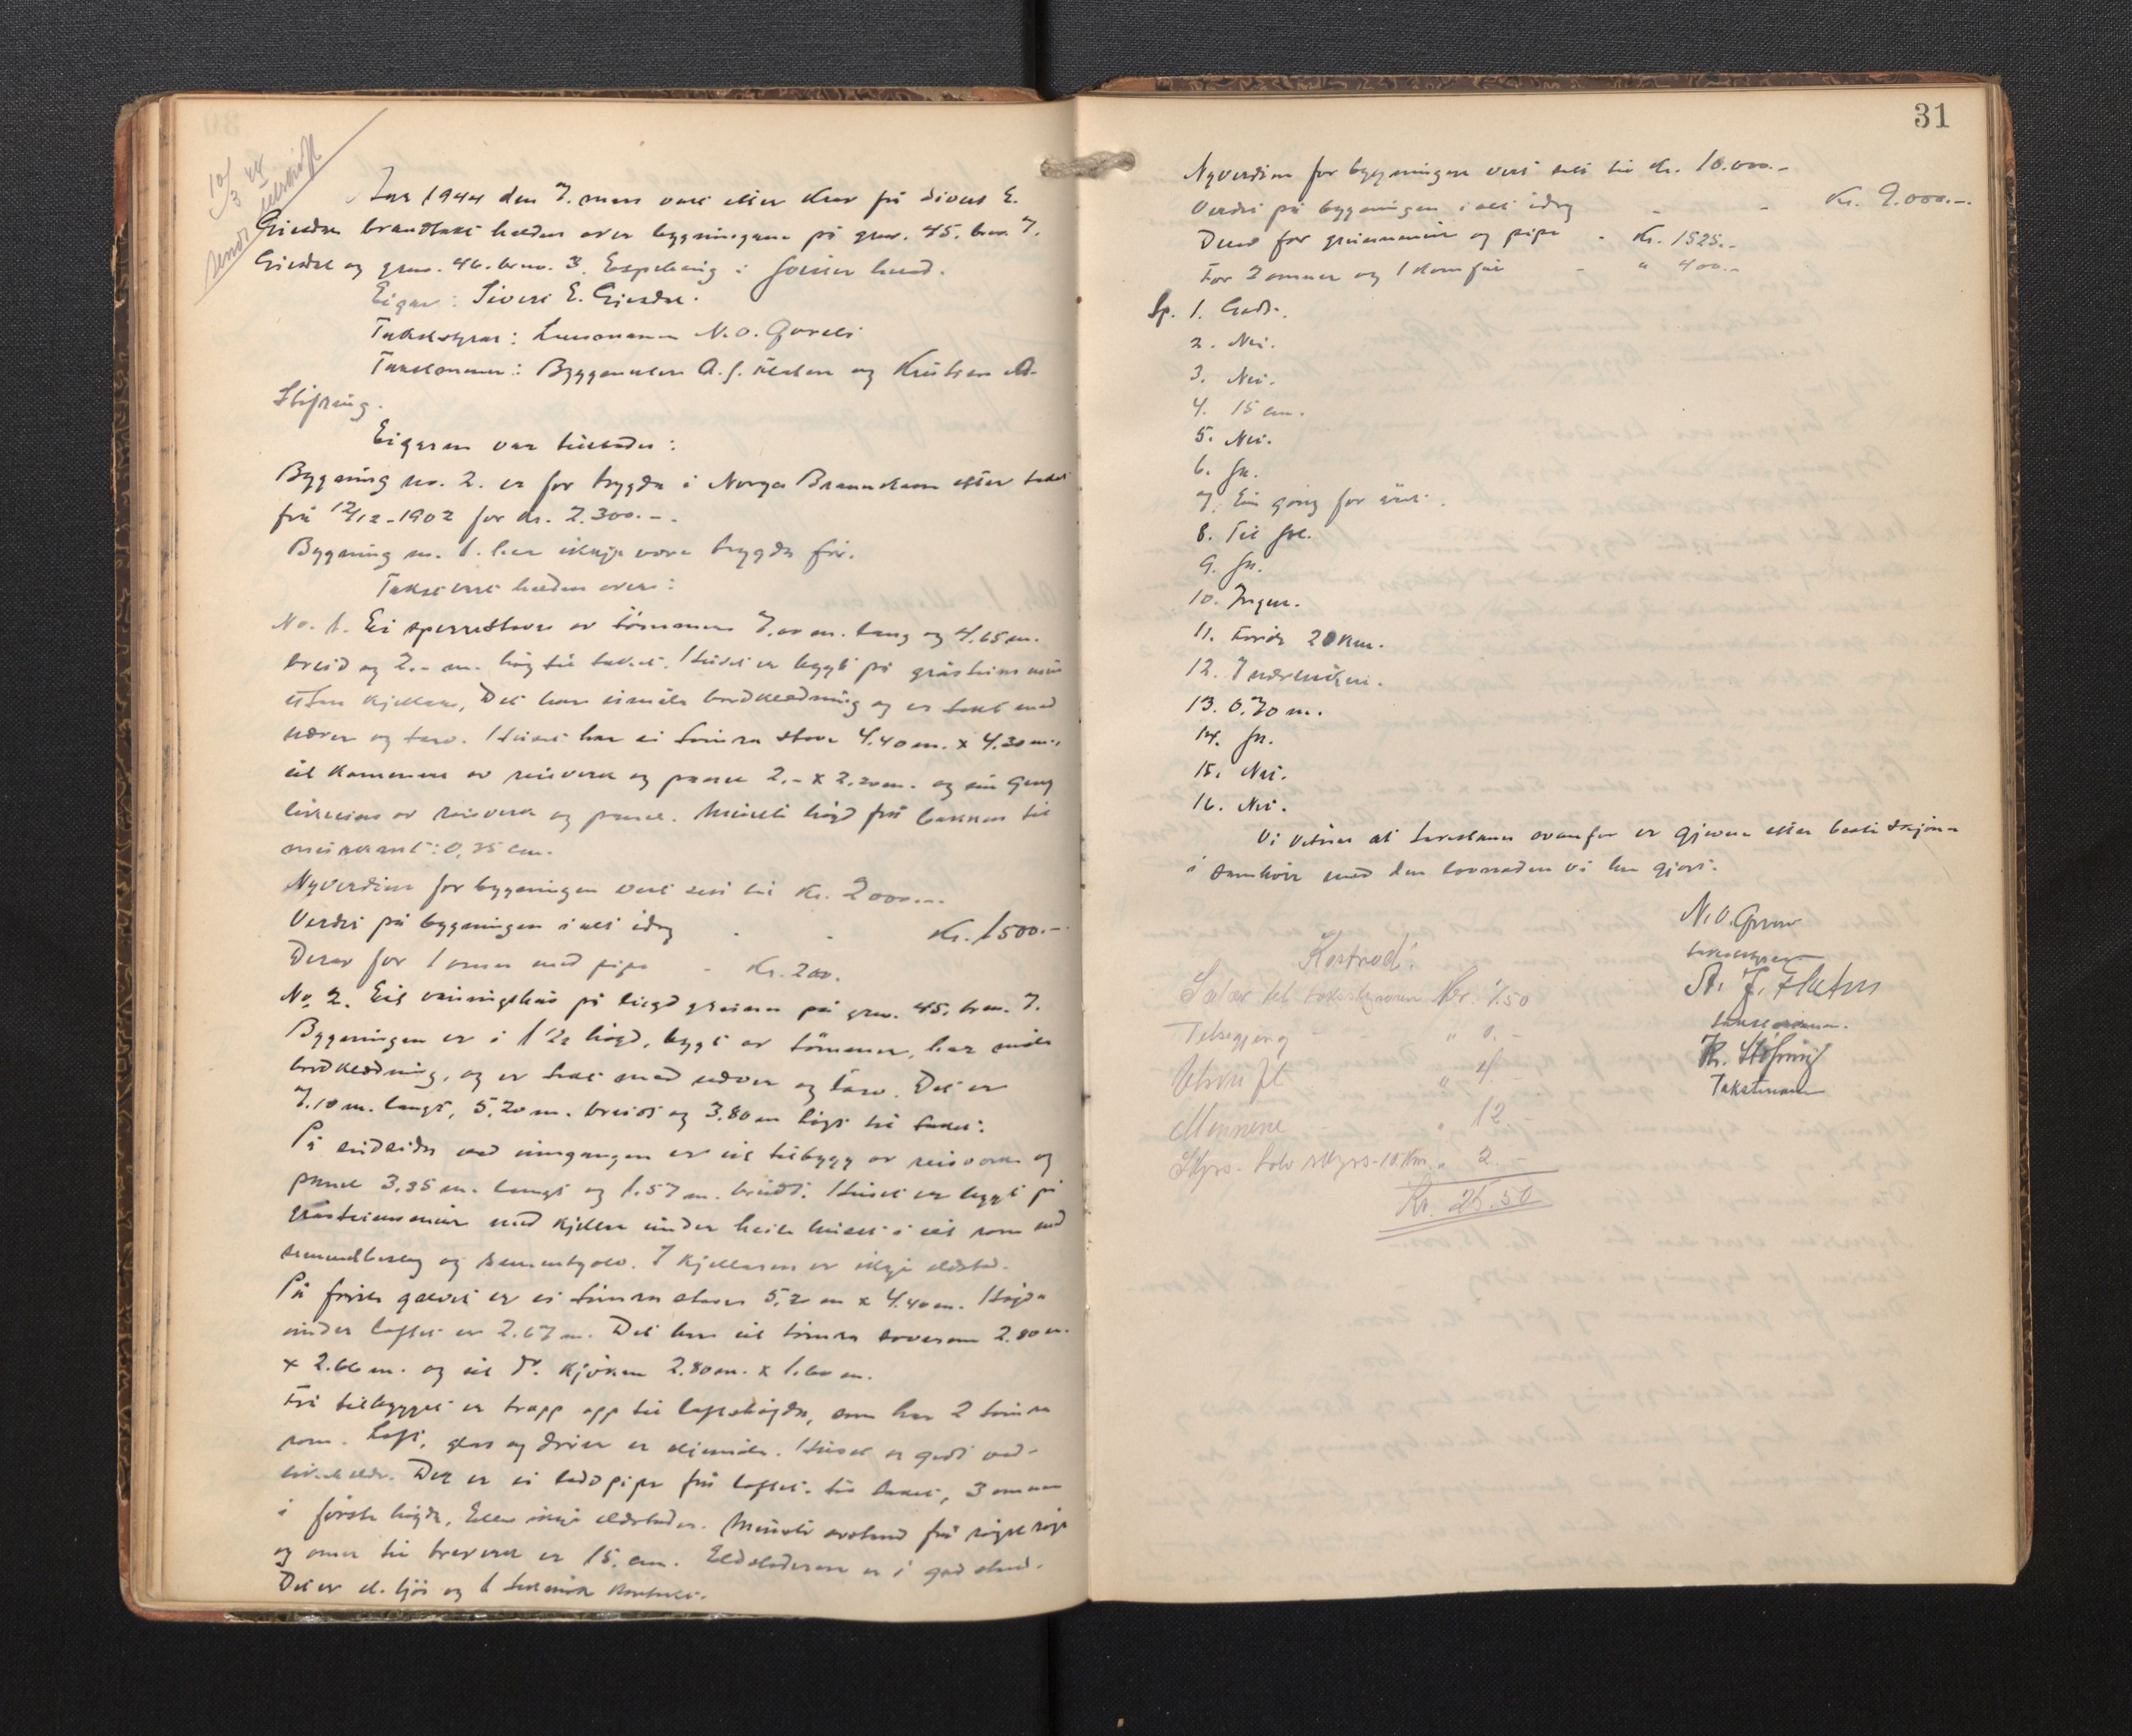 10/3 44
sendt utskrift
Aar 1944 den 7. mars vart etter krav frå Sivert E.
Gjesdal brandtakst halden over bygningane på gnr. 45. bnr. 7.
Gjesdal og gnr. 46. bnr. 3. Espeland i Jølster herad.
Eigar: Sivert E. Gjesdal.
Takststyrar: Lensmann N. O.
Takstmenn: Byggmeister A. J. Flaten og Kristian A.
Støfring.
Eigaren var tilstades:
Bygning no. 2. er før trygda i Norges Brannkasse etter takst
frå 12/12-1902 for kr. 2.300.-.
Bygning no. 1. har ikkje vore trygda før.
Takst vart halden over:
No. 1. Ei sperrestove av tømmer 7.00 m. lang og 4.65 m.
breid og 2.- m. høg til taket. Huset er bygt på gråsteins mur
utan kjellar. Det har umåla bordklædning og er tekt med
næver og torv. Huset har ei tømra stove 4.40 m. x 4.30 m.,
eit kammers av reisverk og panel 2.- x 2.20 m. og ein gang
likeeins av reisverk og panel. Minste høgd frå bakken til
murkant: 0,35 cm.
Nyverdien for bygningen vert sett til kr. 2000.-.
Verdet på bygningen i alt idag - - Kr. 1500.-
Derav for 1 omn med pipe - Kr. 200.
No. 2. Eit våningshus på eigd grunn på gnr. 45. bnr. 7.
Bygningen er i 1 1/2 høgd, bygt av tømmer, har måla
bordklædning, og er tekt med næver og torv. Det er
7.10 m. langt, 5,20 m. breidt og 3.80 m høgt til taket.
På eidsida ved inngangen er eit tilbygg av reisverk og
panel 3.35 m. langt og 1.57 m. breidt. Huset er bygt på
gråsteinsmur med kjellar under heile huset i eit rom med
sementbeslag og sementgolv. I kjellaren er ikkje eldstad.
På første golvet er ei tømra stove 5,2 m x 4.40 m. Høgda
under loftet er 2.67 m. Det har eit tømra soverom 2.80 m.
x 2.66 m. og eit do. kjøken 2.80 m. x 1.60 m.
Frå tilbygget er trapp opp til loftshøgda, som har 2 tømra
rom. Loft, glas og dører er måla. Huset er godt ved-
likehalde. Der er ei pipe frå loftet til taket, 3 omnar
i første høgda. Elles ikkje eldstader. Minste avstand frå røykrøyr
og omn til treverk er 15. cm. Eldstaderne er i god stand.
Det er el. ljós og 1 teknisk kontakt.
31
Nyverdien for bygningen vert sett til kr. 10.000.-
Verdet på bygningen i alt idag - - Kr. 9.000.-.
Derav for grunnmur og pipe - Kr. 1525.-
For 2 omnar og 1 komfür - " 400.-
Sp. 1. Godt.
2. Nei.
3. Nei.
4. 15 cm.
5. Nei.
6. Ja.
7. Ein gong for året.
8. Til Jol.
9. Ja.
10. Ingen.
11. Førde 20 km.
12. I nærleiken.
13. 0.70 m.
14. Ja.
15. Nei.
16. Nei.
Vi vitnar at taksten ovanfor er gjeven etter beste skjøn
i samhøve med den lovnaden vi har gjort.
N. O.
takststyrar
A. J. Flaten
takstmann.
Kr. Støfring
Takstmann
Kostnad:
Salær til takststyraren Kr. 7.50
Tilsegjing - " 0.-
Utskrift " 4.
Mennene " 12.-
Skyss- 10. km. " 2.-
Kr. 25.50